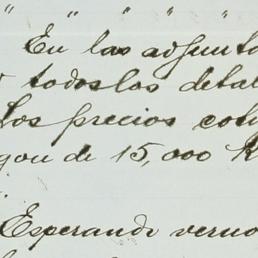 " " " " "
En las adjunta
todos los detal
Los precios coti
gon de 15,000 K
Esperando vernos